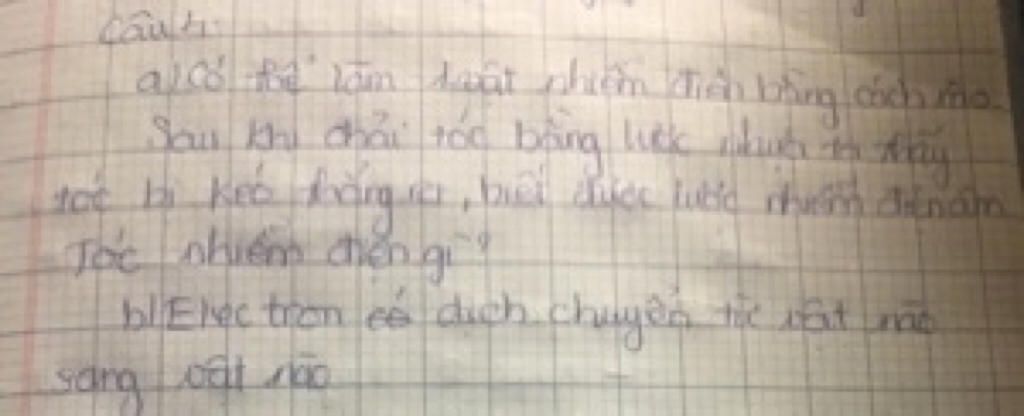 Câu 4:
a) Có thể làm 1 vật nhiễm điện bằng cách nào.
Sau khi chải tóc bằng lược nhựa ta thấy
tóc bị kéo thẳng ra, biết được lược nhiễm điện âm
Tóc nhiễm điện gì?
b) Elec tron dịch chuyển từ vật nào
sang vật nào